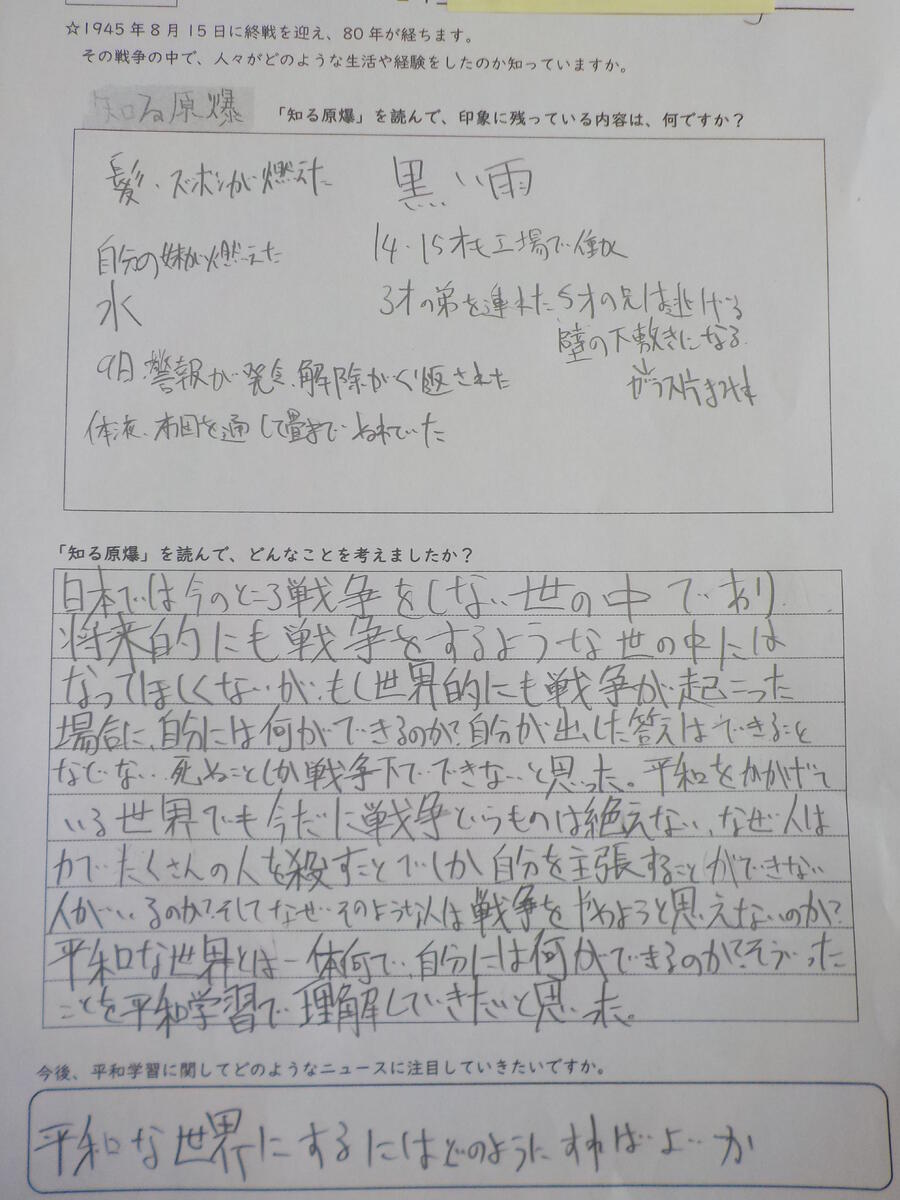 ☆1945年8月15日に終戦を迎え、80年が経ちます。
その戦争の中で、人々がどのような生活や経験をしたのか知っていますか。
知る原爆
「知る原爆」を読んで、印象に残っている内容は、何ですか？
髪、ズボンが燃えた
黒い雨
自分の妹が燃えた
14・15才も工場で働く
水
3才の弟を連れた5才の兄は逃げる
壁の下敷きになる
ガラス片まみれ
9日、警報が発令、解除がくり返された
体液、布団を通して畳までぬれていた
「知る原爆」を読んで、どんなことを考えましたか？
日本では今のところ戦争をしない世の中であり、
将来的にも戦争をするような世の中には
なってほしくないが、もし世界的にも戦争が起こった
場合に、自分には何ができるのか？自分が出した答えはできること
などない、死ぬことしか戦争下でできないと思った。平和をかかげて
いる世界でも今だに戦争というものは絶えない、なぜ人は
力でたくさんの人を殺すことでしか自分を主張することができない
人がいるのか？そしてなぜそのような人は戦争をやめようと思えないのか？
平和な世界とは一体何で、自分には何ができるのか？そういった
ことを平和学習で理解していきたいと思った。
今後、平和学習に関してどのようなニュースに注目していきたいですか。
平和な世界にするにはどのようにすればよいか